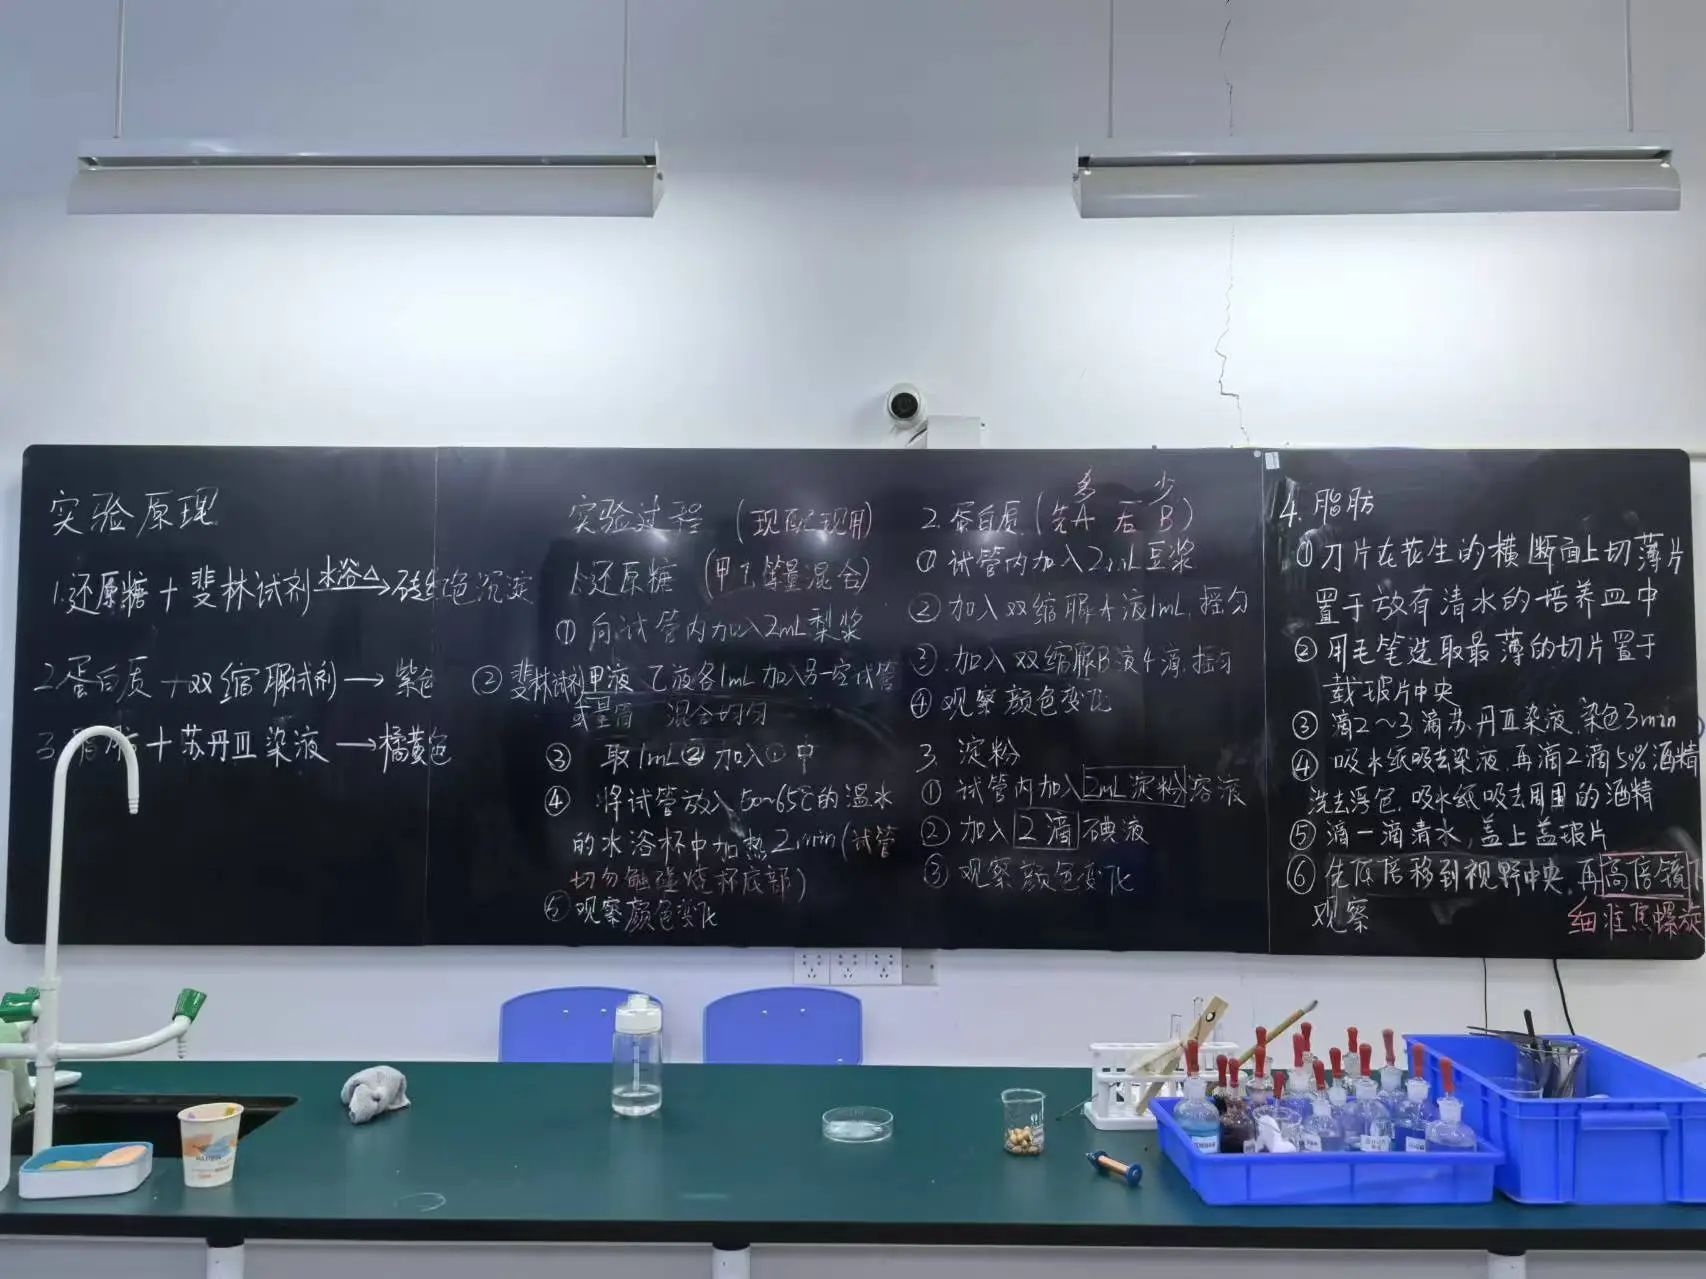 实验原理
1.还原糖 + 斐林试剂 水浴△→ 砖红色沉淀
2.蛋白质 + 双缩脲试剂 → 紫色
3.脂肪 + 苏丹Ⅲ染液 → 橘黄色
实验过程 (现配现用)
1.还原糖 (甲乙等量混合)
① 向试管内加入2mL梨浆
② 斐林试剂甲液 乙液各1mL加入另一空试管
或量筒 混合均匀
③ 取1mL②加入①中
④ 将试管放入50~65℃的温水
的水浴杯中加热2min(试管
切勿触碰烧杯底部)
⑤ 观察颜色变化
多 少
2.蛋白质 (先A 后B)
① 试管内加入2mL豆浆
② 加入双缩脲A液1mL,摇匀
③ 加入双缩脲B液4滴,摇匀
④ 观察颜色变化
3. 淀粉
① 试管内加入2mL淀粉溶液
② 加入2滴碘液
③ 观察颜色变化
4. 脂肪
① 刀片在花生的横断面上切薄片
置于放有清水的培养皿中
② 用毛笔选取最薄的切片置于
载玻片中央
③ 滴2~3滴苏丹Ⅲ染液,染色3min
④ 吸水纸吸去染液,再滴2滴50%酒精
洗去浮色,吸水纸吸去周围的酒精
⑤ 滴一滴清水,盖上盖玻片
⑥ 先低倍移到视野中央,再高倍镜下
观察 细准焦螺旋